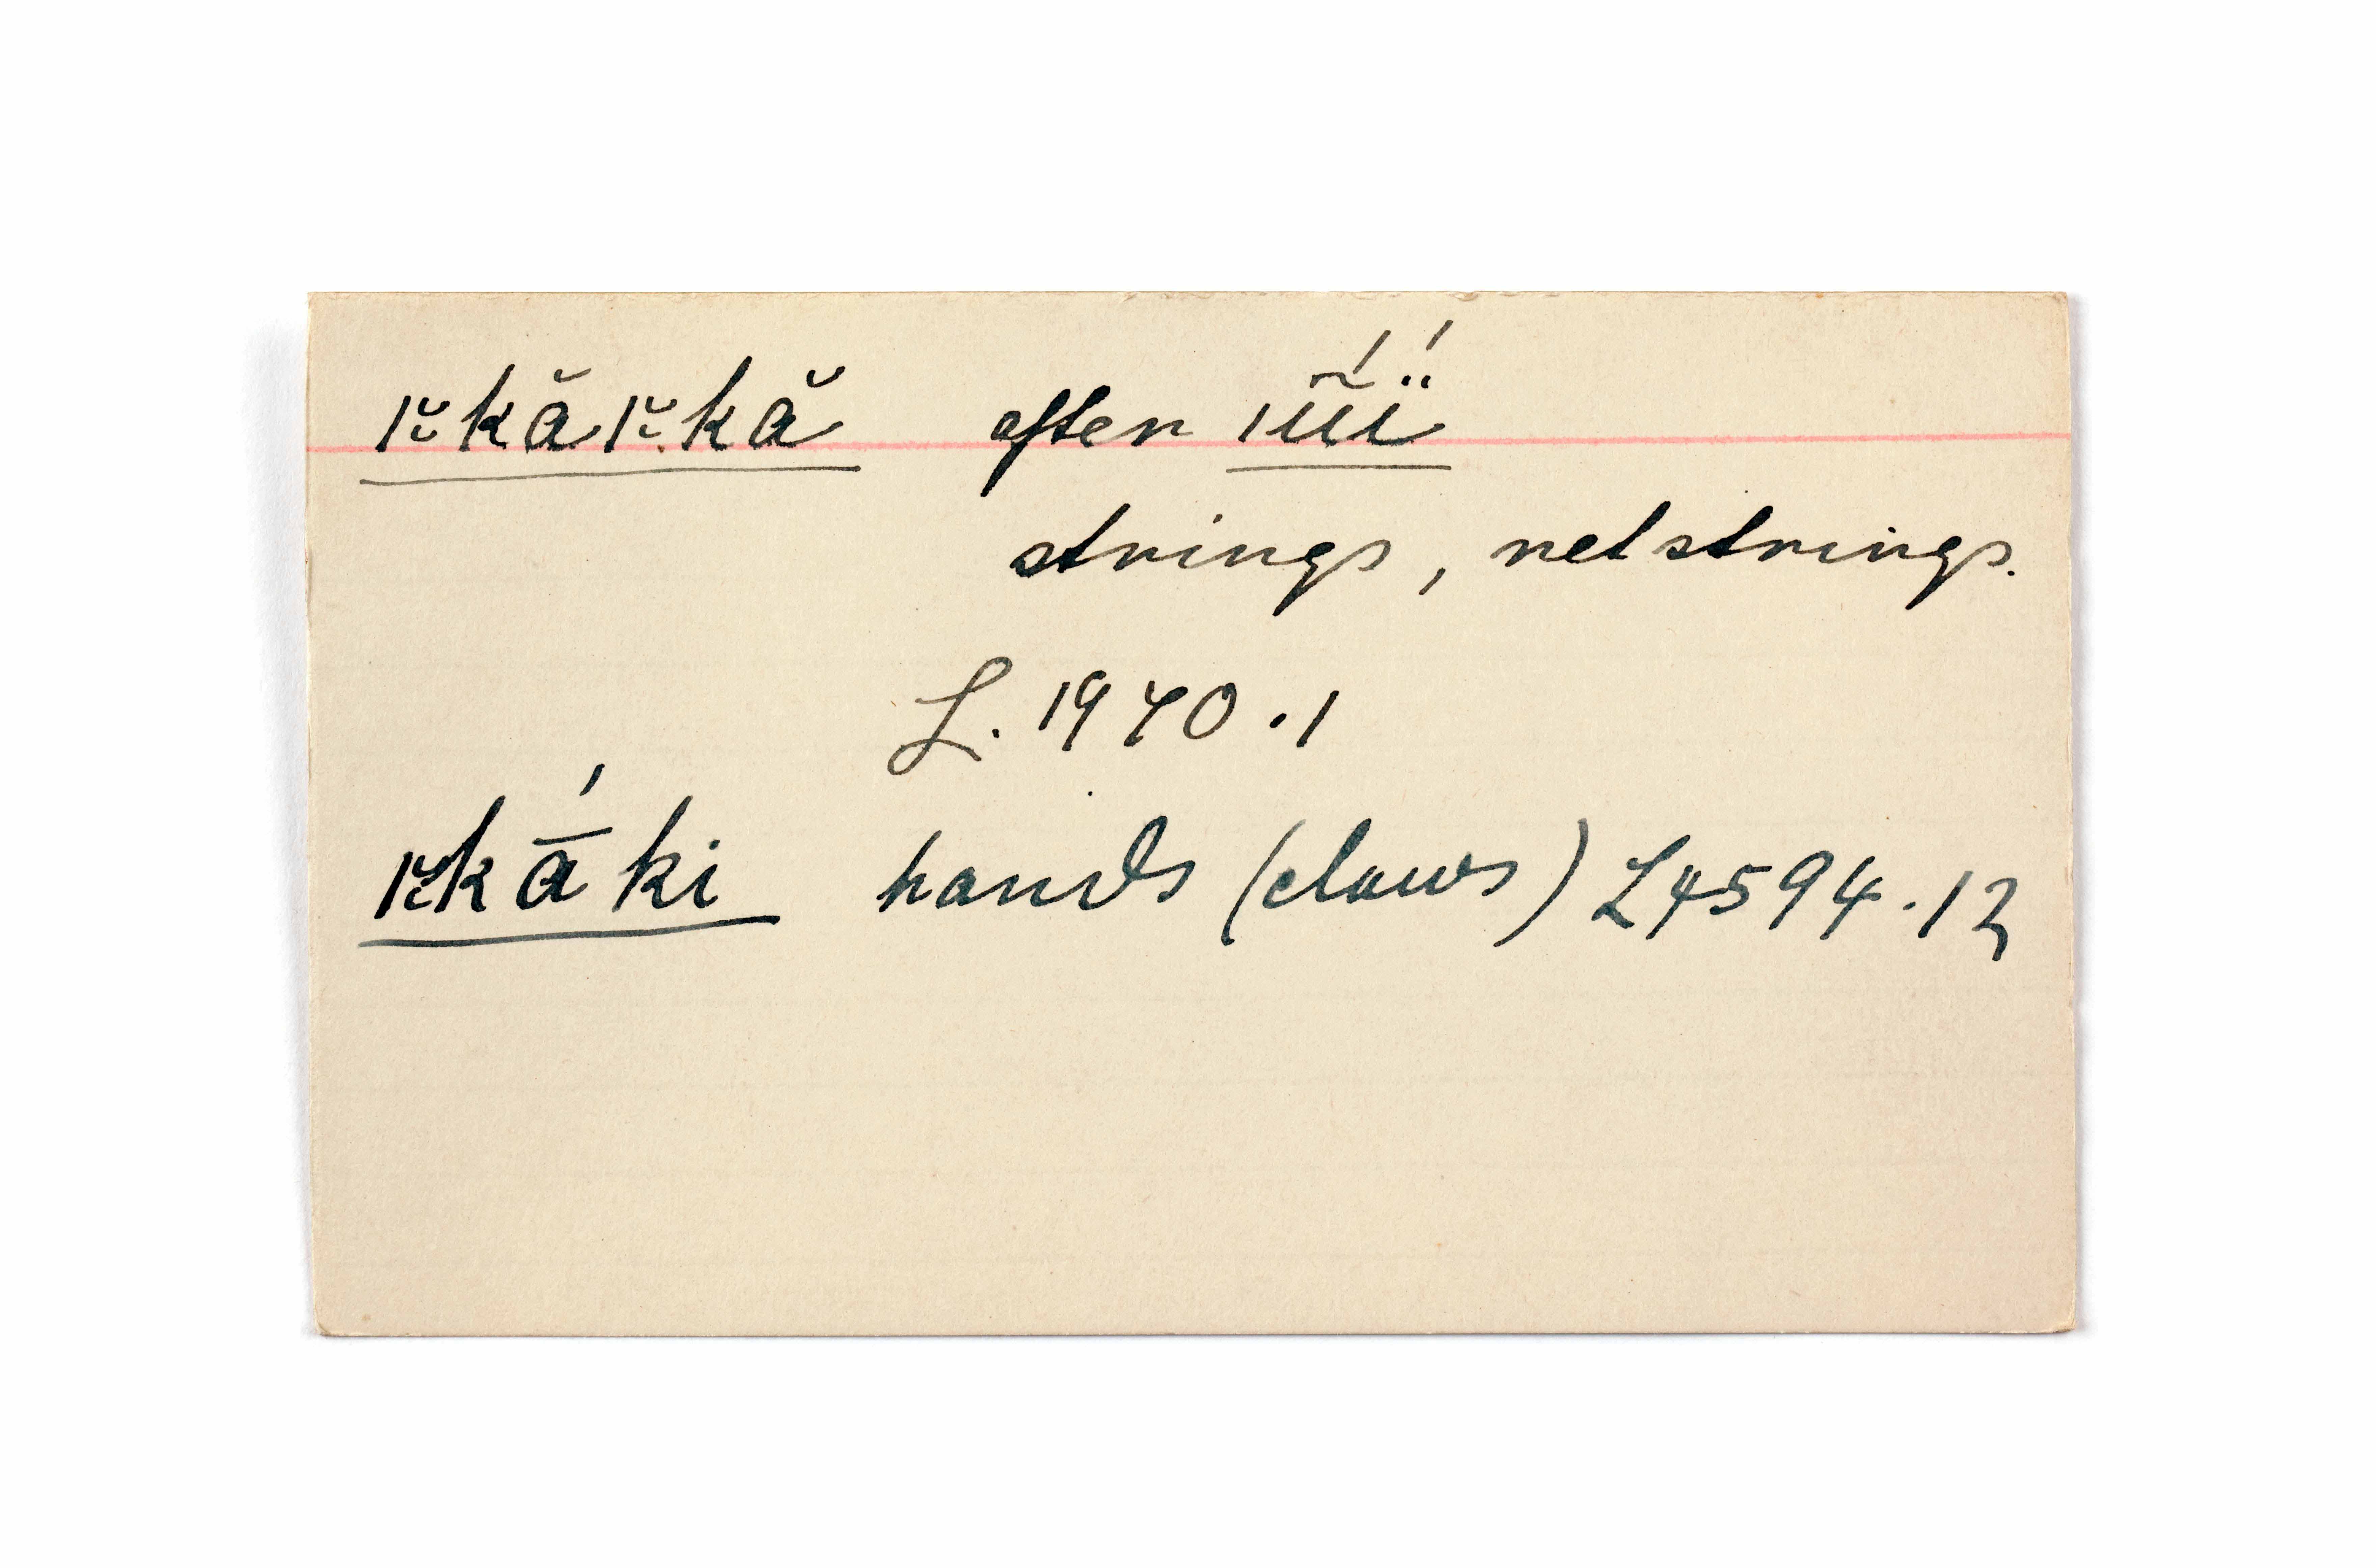 ǀ˜˘kăǀ˜˘kă often ǀĩ́ḯ
strings, netstrings.
L. 1940.1
ǀ˜˘kā́ki hands (claws) L4594.12